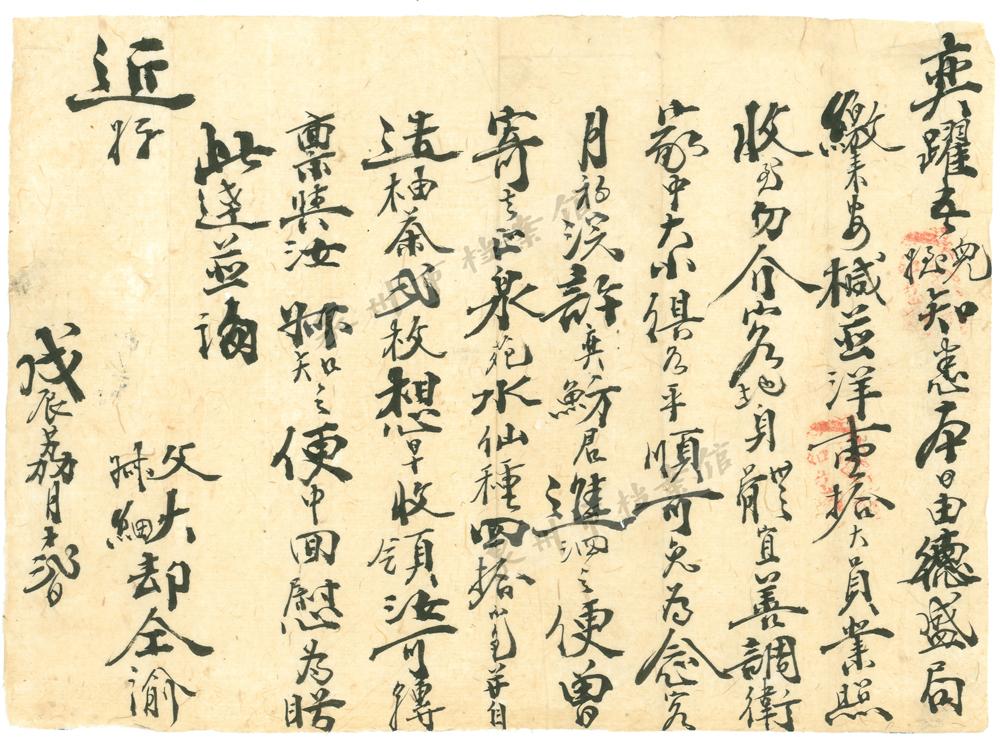 奕躍吾兒 知悉本日由德盛局
繳來安椷並洋十拾大員業照
收到勿介客地身體宜善調衛
家中大小俱各平順可免為念客
月初浼許奕魴方君進泗之便曾
寄去正泉苑水仙種四拾 并自
造柚茶弍枚想早收領汝可轉
稟與汝 知之便中回慰為盼
此達並詢
近好
父大却
細 仝諭
戊辰 月十